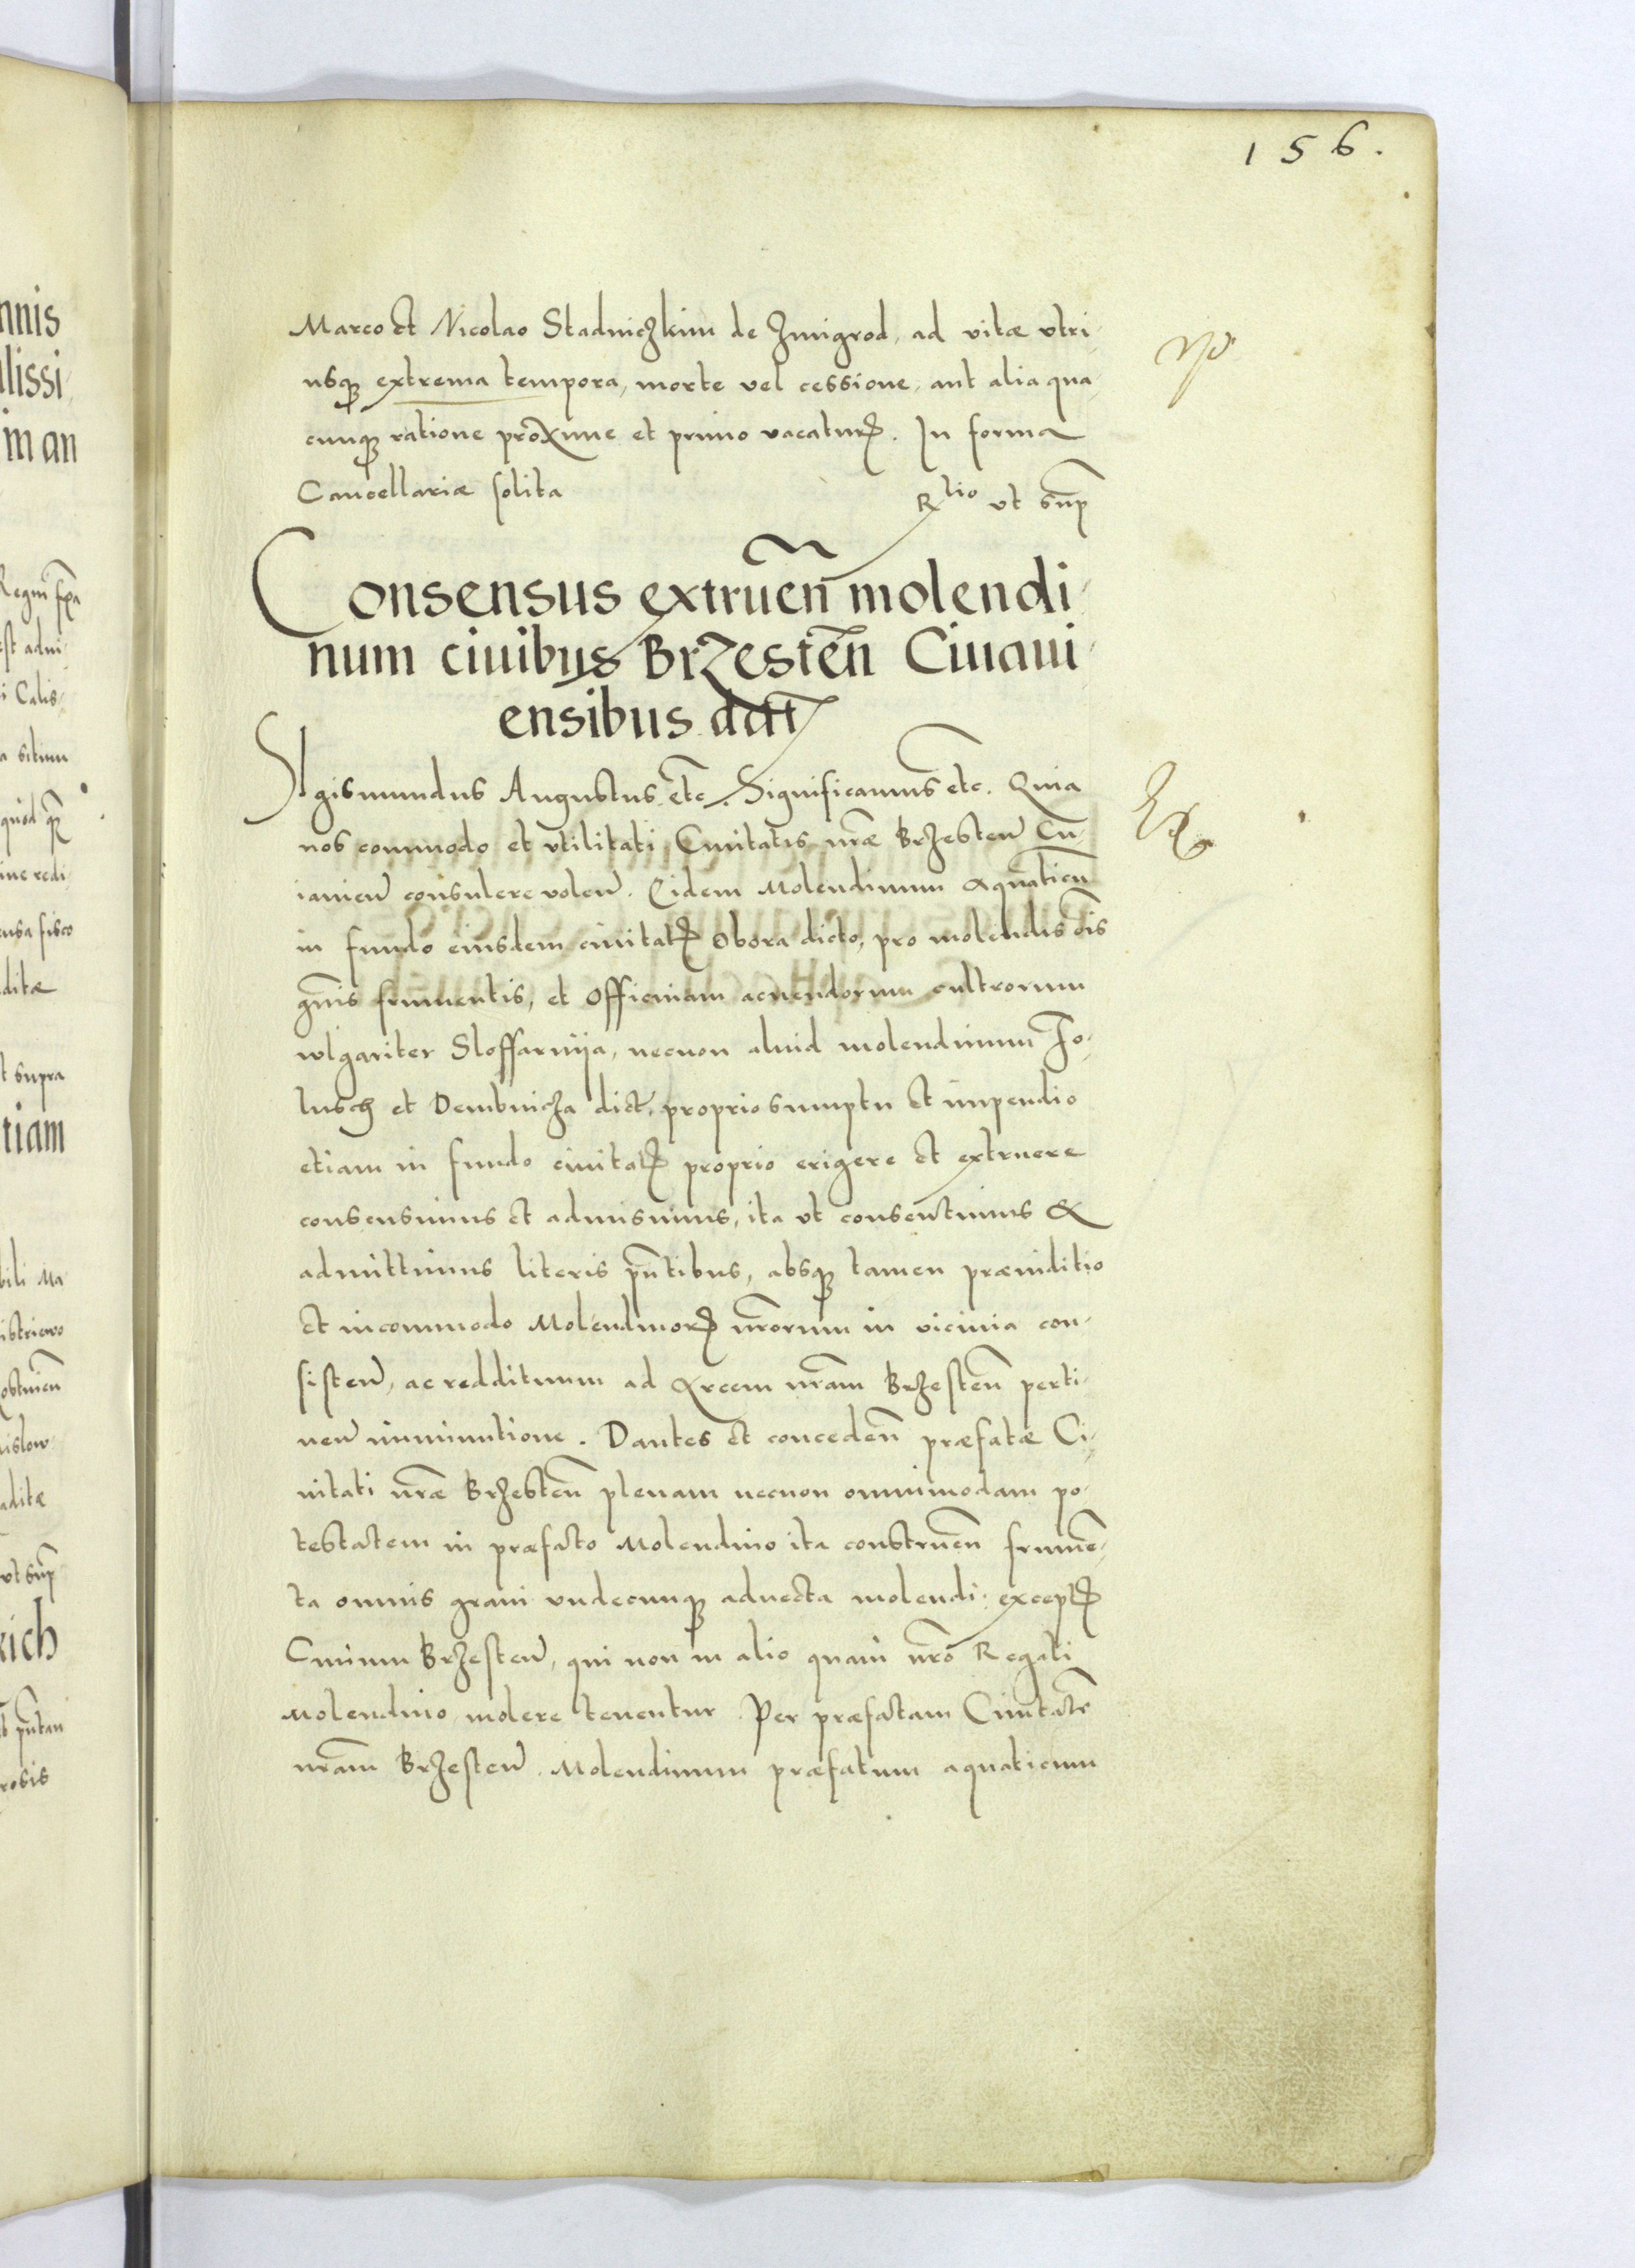 156.
Marco et Nicolao Stadniczkim de Zmigrod, ad vitæ vtri-
usqȝ extrema tempora, morte vel cessione, aut alia qua-
cunqȝ ratione proxime et primo vacaturꝭ. In forma
Cancellariæ solita
Rtio vt sup̄
Consensus extruen̄ molendi-
num ciuibus Brzesten̄ Ciuaui-
ensibus dat̄
Sigismundus Augustus etc. Significamus etc. Quia
nos commodo et vtilitati Ciuitatis nr̄æ Brzesten̄ Cu-
iauien̄ consulere volen̄. Eidem Molendinum aquaticū
in fundo eiusdem ciuitatꝭ Obora dicto, pro molendis oīs
gn̄is frumentis, et Officinam acuendorum cultrorum
wlgariter Sloffarnija, necnon aliud molendinum Fo-
lusch et Dembnicza dict, proprio sumptu et impendio
etiam in fundo ciuitatꝭ proprio erigere et extruere
consensimus et admisimus, ita vt consentimus &
admittimus literis pn̄tibus, absqȝ tamen præiuditio
et incommodo Molendinorꝭ nr̄orum in vicinia con-
sisten̄, ac reddituum ad Arcem nr̄am Brzesten̄ perti-
nen̄ imminutione. Dantes et conceden̄ præfatæ Ci-
uitati nr̄æ Brzesten̄ plenam necnon omnimodam po-
testatem in præfato Molendino ita construen̄ frumē-
ta omnis grani vndecunqȝ aduecta molendi: exceptꝭ
Ciuium Brzesten̄, qui non in alio quam nr̄o Regali
Molendino molere tenentur. Per præfatam Ciuitatē
nr̄am Brzesten̄. Molendinum præfatum aquaticum